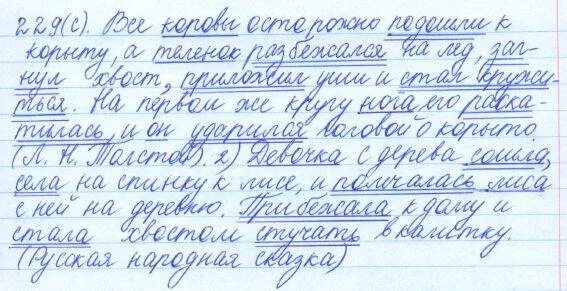 229(с). Все коровы осторожно подошли к
корыту, а теленок разбежался на лед, заг-
нул хвост, приложил уши и стал кружи-
ться. На первом же кругу нога его раска-
тилась, и он ударился головой о корыто
(Л. Н. Толстой). 2) Девочка с дерева сошла,
села на спинку к лисе, и помчалась лиса
с ней на деревню. Прибежала к дому и
стала хвостом стучать в калитку.
(Русская народная сказка)